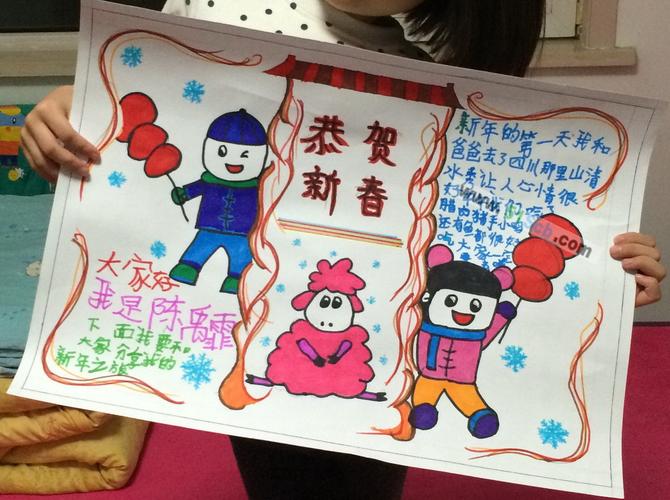 恭贺
新春
大家好
我是陈禹霏
下面我要和
大家分享我的
新年之旅
新年的第一天我和
爸爸去了四川那里山清
水秀让人心情很
好
腊肉猪手小
还有鱼都很好
吃大家一
.com